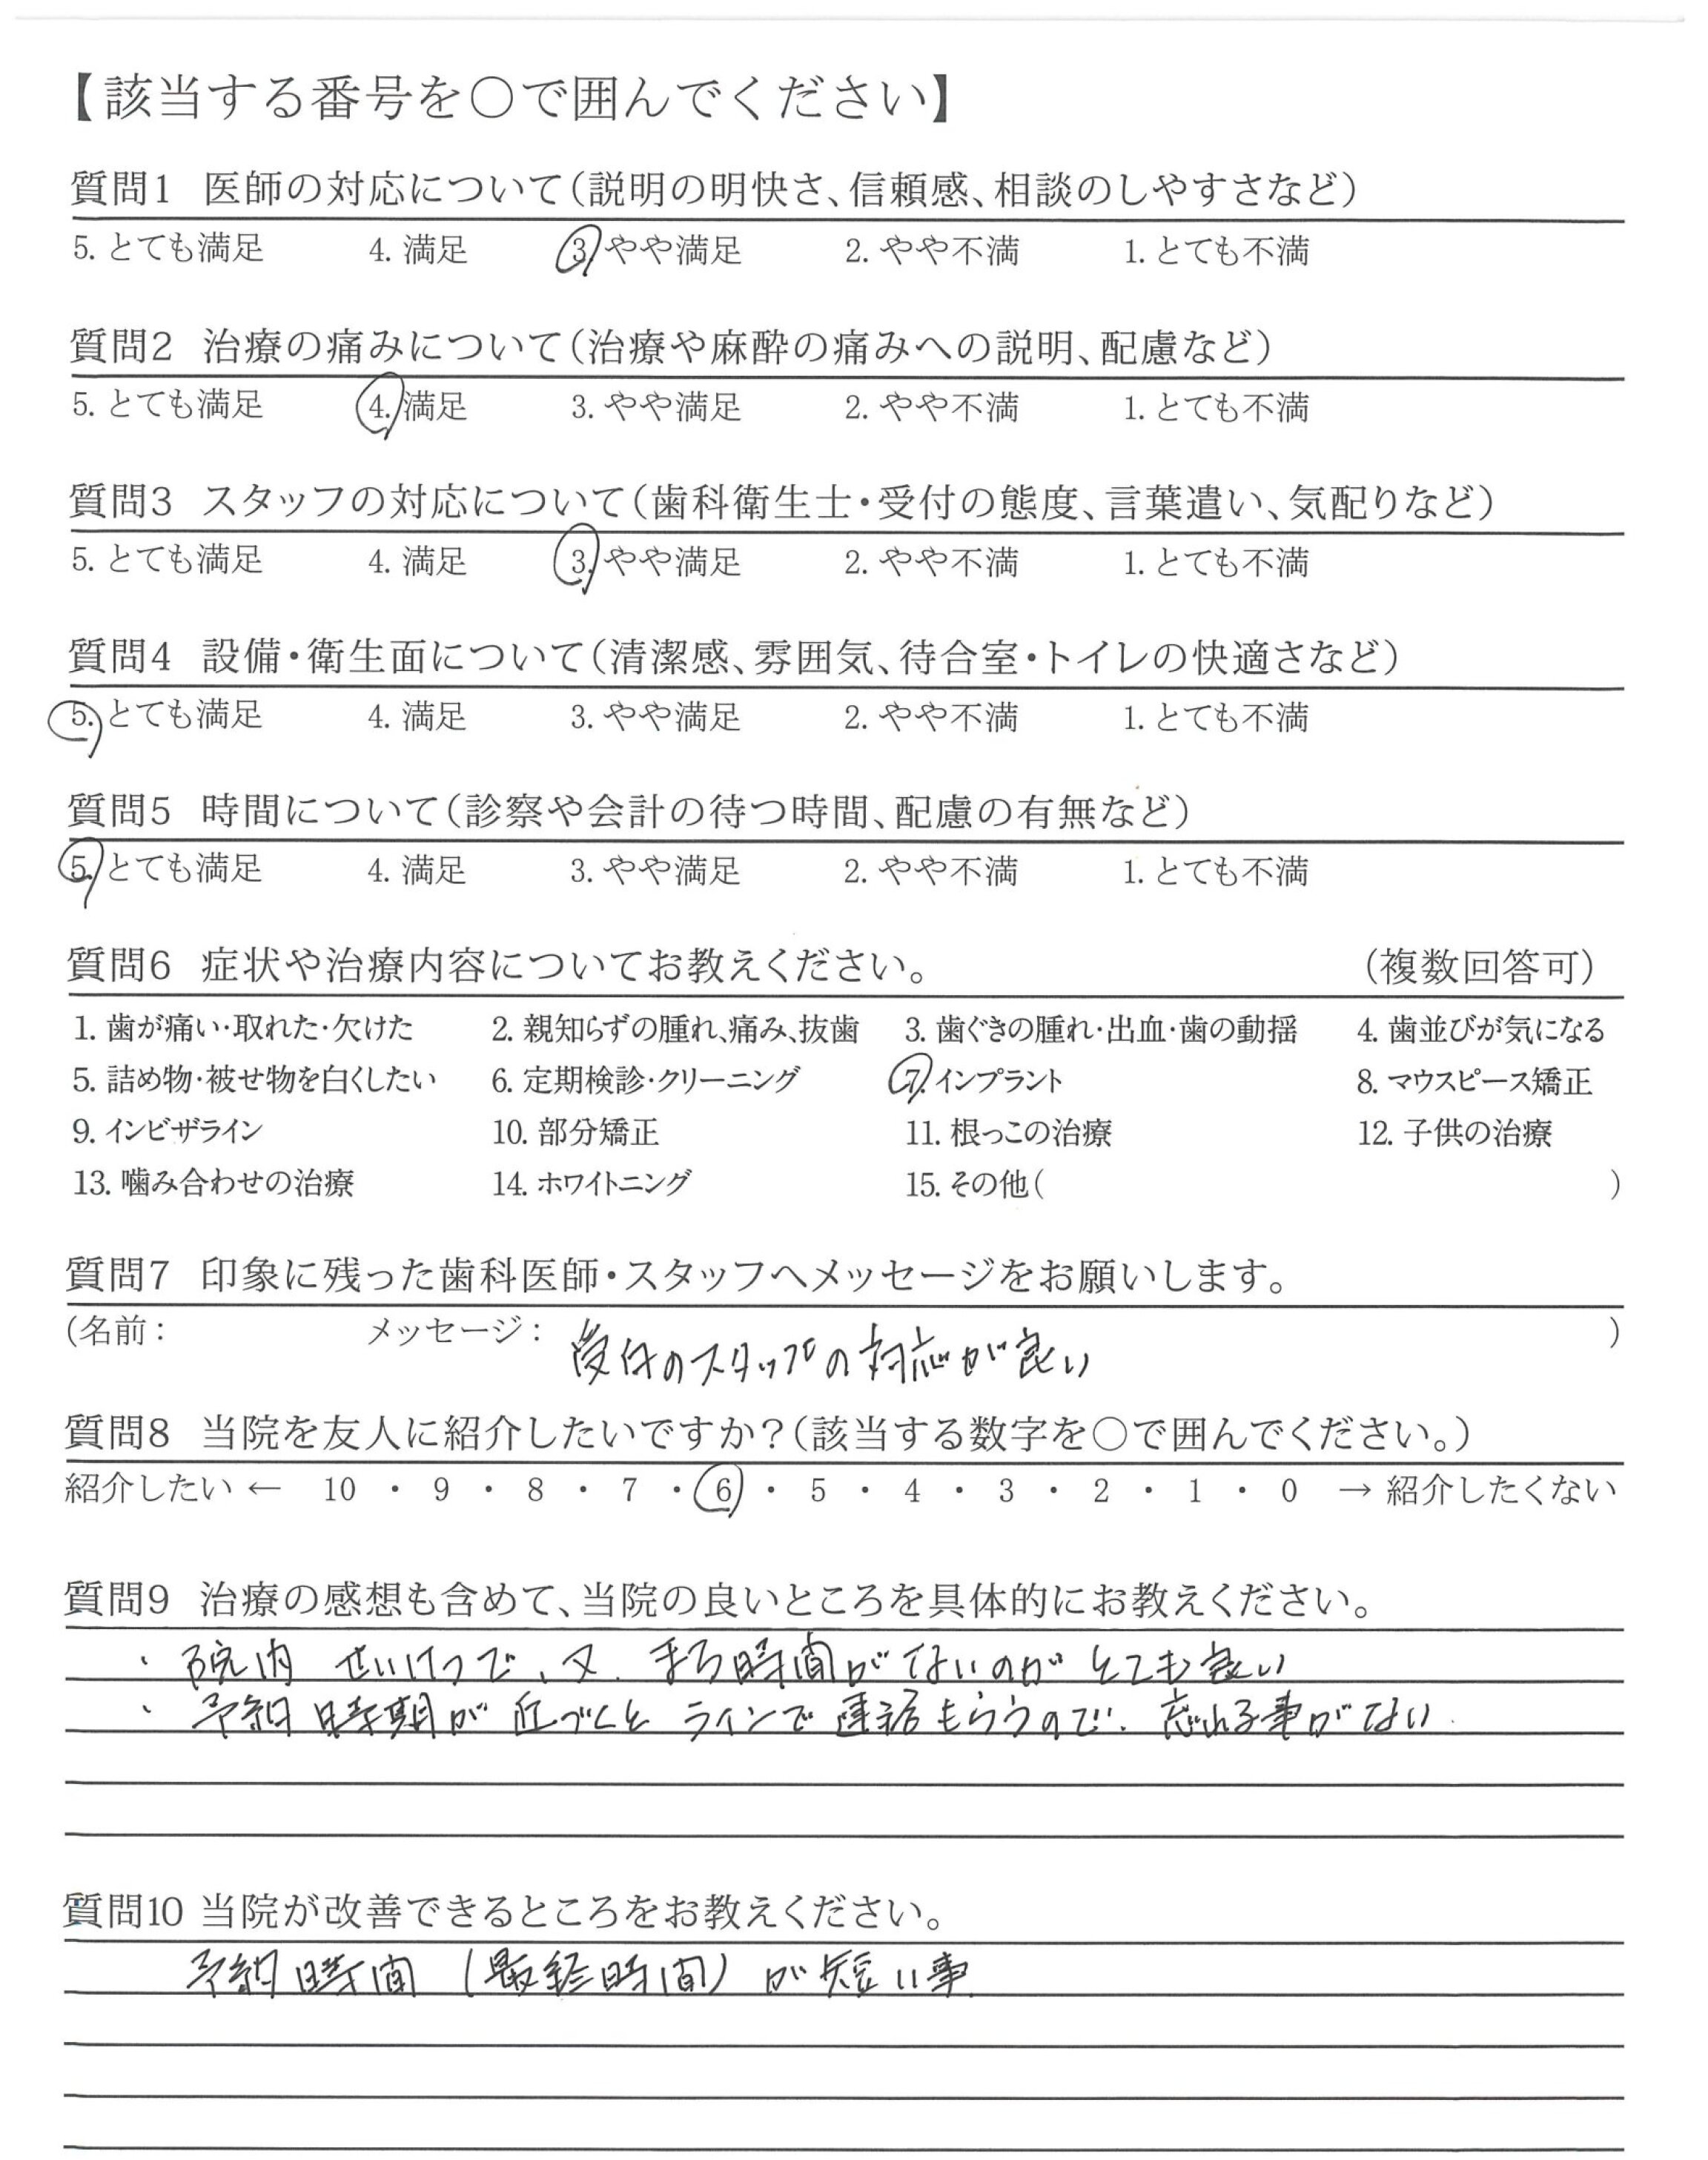 【該当する番号を○で囲んでください】
質問1 医師の対応について(説明の明快さ、信頼感、相談のしやすさなど)
5. とても満足 4. 満足 3. やや満足 2. やや不満 1. とても不満
質問2 治療の痛みについて(治療や麻酔の痛みへの説明、配慮など)
5. とても満足 4. 満足 3. やや満足 2. やや不満 1. とても不満
質問3 スタッフの対応について(歯科衛生士・受付の態度、言葉遣い、気配りなど)
5. とても満足 4. 満足 3. やや満足 2. やや不満 1. とても不満
質問4 設備・衛生面について(清潔感、雰囲気、待合室・トイレの快適さなど)
5. とても満足 4. 満足 3. やや満足 2. やや不満 1. とても不満
質問5 時間について(診察や会計の待つ時間、配慮の有無など)
5. とても満足 4. 満足 3. やや満足 2. やや不満 1. とても不満
質問6 症状や治療内容についてお教えください。 (複数回答可)
1. 歯が痛い・取れた・欠けた 2. 親知らずの腫れ、痛み、抜歯 3. 歯ぐきの腫れ・出血・歯の動揺 4. 歯並びが気になる
5. 詰め物・被せ物を白くしたい 6. 定期検診・クリーニング 7. インプラント 8. マウスピース矯正
9. インビザライン 10. 部分矯正 11. 根っこの治療 12. 子供の治療
13. 噛み合わせの治療 14. ホワイトニング 15. その他( )
質問7 印象に残った歯科医師・スタッフへメッセージをお願いします。
(名前: メッセージ: 受付のスタッフの対応が良い )
質問8 当院を友人に紹介したいですか?(該当する数字を○で囲んでください。)
紹介したい ← 10 ・ 9 ・ 8 ・ 7 ・ 6 ・ 5 ・ 4 ・ 3 ・ 2 ・ 1 ・ 0 → 紹介したくない
質問9 治療の感想も含めて、当院の良いところを具体的にお教えください。
・ 院内 せいけつで、又、まち時間がないのがとても良い
・ 予約時期が近づくとラインで連絡もらうので、忘れる事がない
質問10 当院が改善できるところをお教えください。
予約時間(最終時間)が短い事